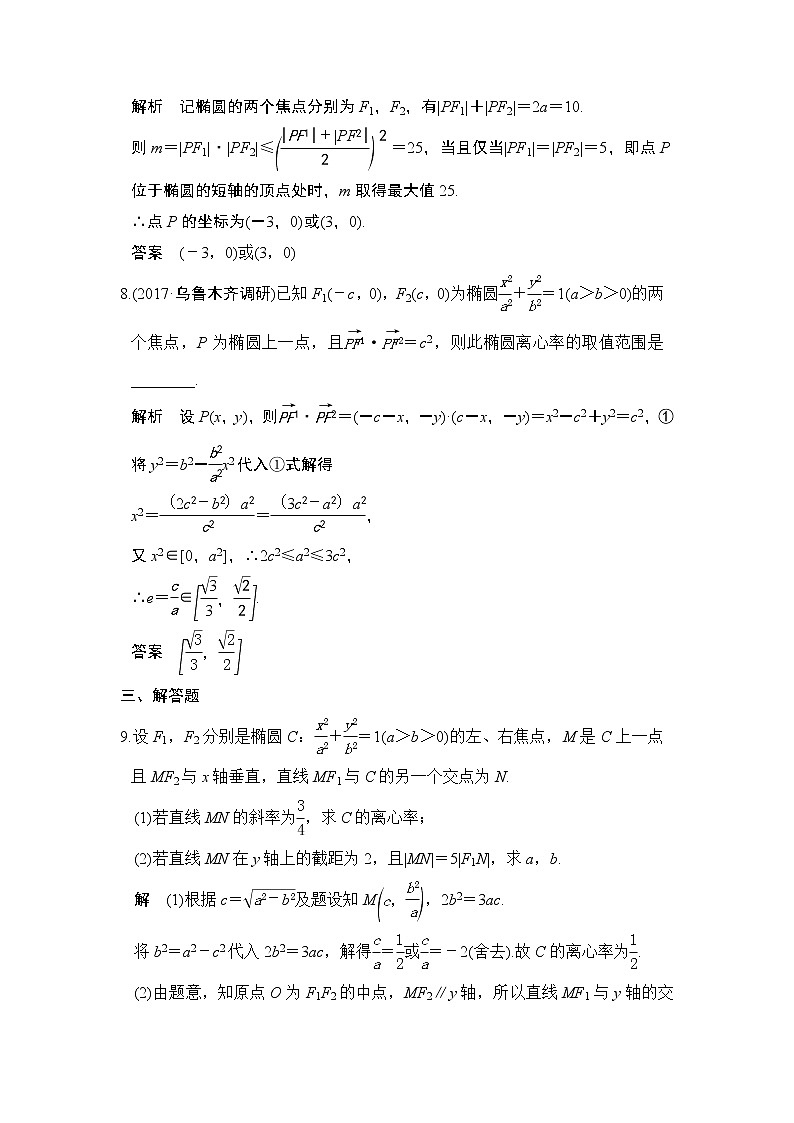 解析　记椭圆的两个焦点分别为 F1，F2，有|PF1|＋|PF2|＝2a＝10.
则 m＝|PF1|·|PF2|≤(|PF1|＋|PF2|/2)2＝25，当且仅当|PF1|＝|PF2|＝5，即点 P
位于椭圆的短轴的顶点处时，m 取得最大值 25.
∴点 P 的坐标为(－3，0)或(3，0).
答案　(－3，0)或(3，0)
8.(2017·乌鲁木齐调研)已知 F1(－c，0)，F2(c，0)为椭圆x2/a2＋y2/b2＝1(a＞b＞0)的两
个焦点，P 为椭圆上一点，且→PF1·→PF2＝c2，则此椭圆离心率的取值范围是
________.
解析　设 P(x，y)，则→PF1·→PF2＝(－c－x，－y)·(c－x，－y)＝x2－c2＋y2＝c2，①
将 y2＝b2－b2/a2x2 代入①式解得
x2＝（2c2－b2）a2/c2＝（3c2－a2）a2/c2，
又 x2∈[0，a2]，∴2c2≤a2≤3c2，
∴e＝c/a∈[√3/3，√2/2].
答案　[√3/3，√2/2]
三、解答题
9.设 F1，F2 分别是椭圆 C：x2/a2＋y2/b2＝1(a＞b＞0)的左、右焦点，M 是 C 上一点
且 MF2 与 x 轴垂直，直线 MF1 与 C 的另一个交点为 N.
(1)若直线 MN 的斜率为3/4，求 C 的离心率；
(2)若直线 MN 在 y 轴上的截距为 2，且|MN|＝5|F1N|，求 a，b.
解　(1)根据 c＝√a2－b2及题设知 M(c，b2/a)，2b2＝3ac.
将 b2＝a2－c2 代入 2b2＝3ac，解得c/a＝1/2或c/a＝－2(舍去).故 C 的离心率为1/2.
(2)由题意，知原点 O 为 F1F2 的中点，MF2∥y 轴，所以直线 MF1 与 y 轴的交